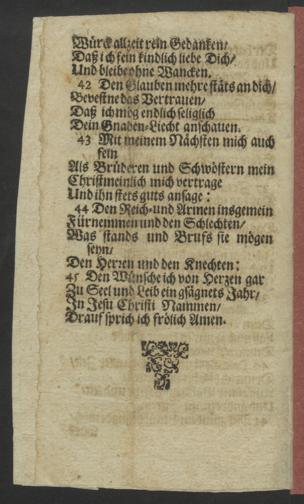 Würck allzeit rein Gedancken/
Daß ich fein kindlich liebe Dich/
Und bleibe ohne Wancken.
42 Den Glauben mehre stäts an dich/
Bevestne das Vertrauen/
Daß ich mög endlich seliglich
Dein Gnaden-Liecht anschauen.
43 Mit meinem Nächsten mich auch
fein
Als Brüderen und Schwöstern mein
Christmeinlich mich vertrage
Und ihn stets guts ansage:
44 Den Reich- und Armen insgemein
Fürnemmen und den Schlechten/
Was stands und Brufs sie mögen
seyn/
Den Herren und den Knechten:
45 Den Wünsche ich von Herzen gar
Zu Seel und Leib ein gsägnets Jahr/
In Jesu Christi Nammen/
Drauf sprich ich frölich Amen.